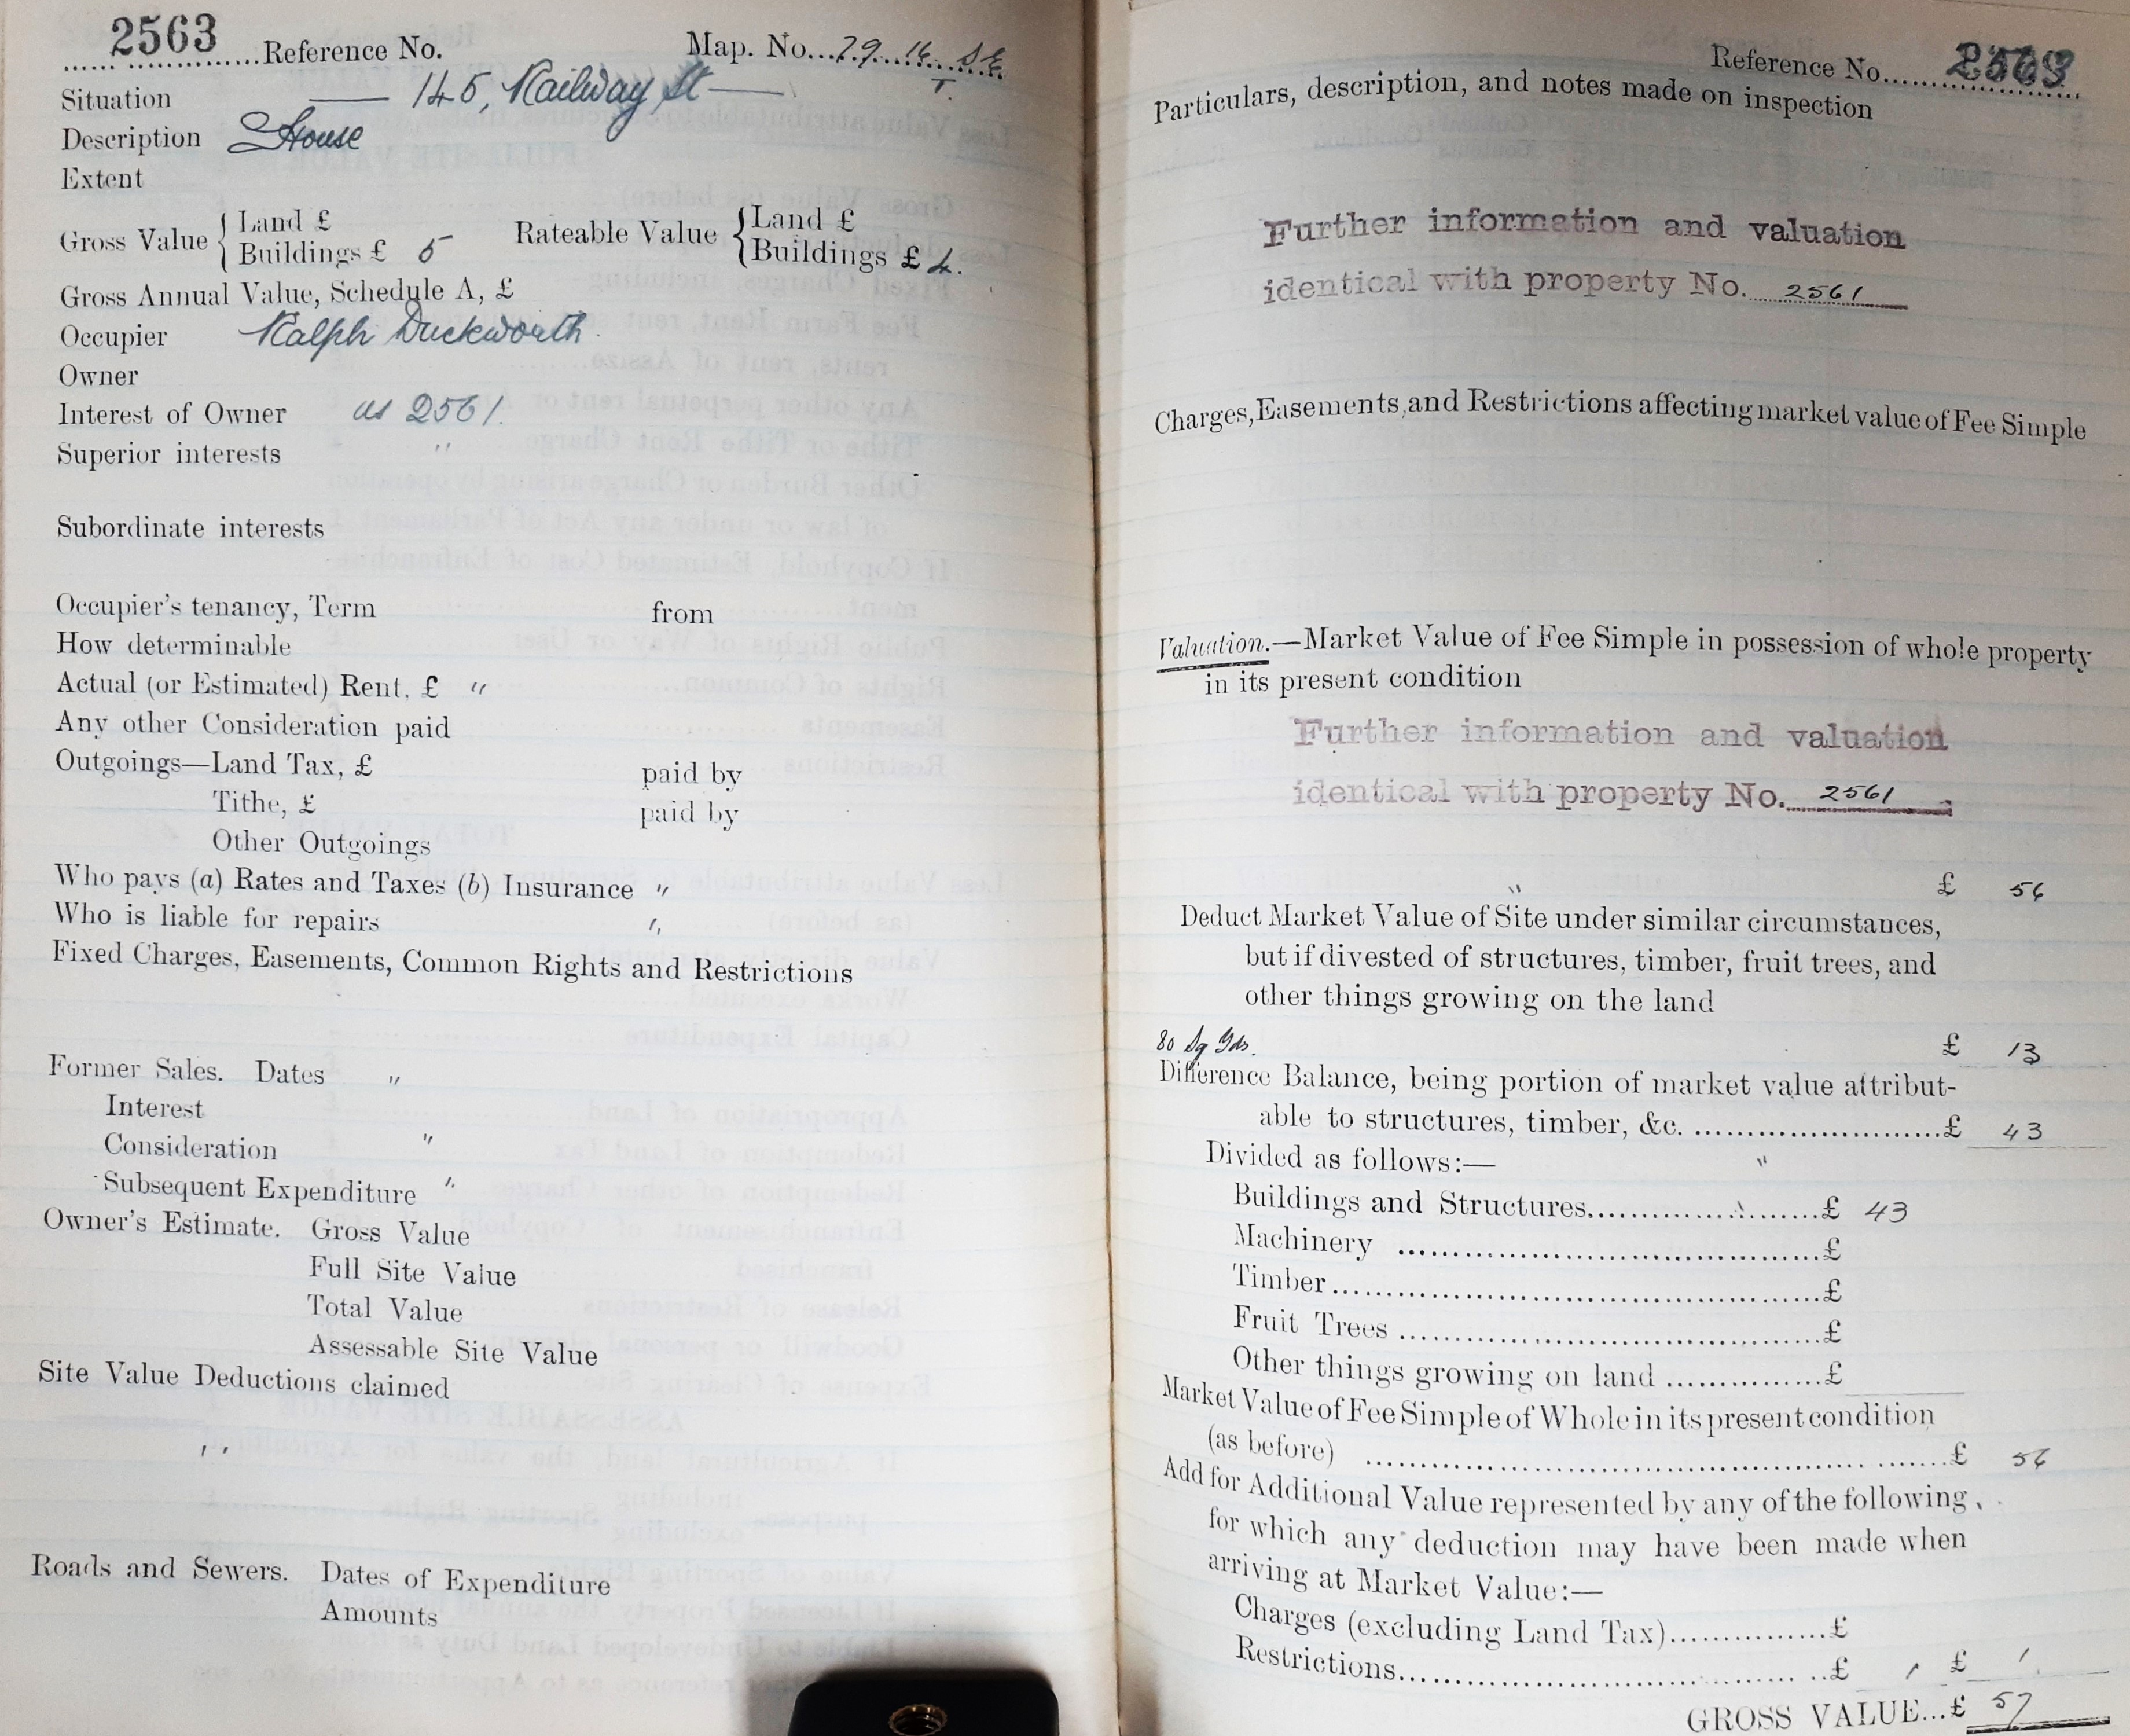 2563 Reference No. Map. No. 79. 16. S E
T.
Situation 145, Railway St
Description House
Extent
Gross Value { Land £
Buildings £ 5
Rateable Value { Land £
Buildings £ 4.
Gross Annual Value, Schedule A, £
Occupier Ralph Duckworth
Owner
Interest of Owner as 2561.
Superior interests "
Subordinate interests
Occupier's tenancy, Term from
How determinable
Actual (or Estimated) Rent, £ "
Any other Consideration paid
Outgoings—Land Tax, £ paid by
Tithe, £ paid by
Other Outgoings
Who pays (a) Rates and Taxes (b) Insurance "
Who is liable for repairs "
Fixed Charges, Easements, Common Rights and Restrictions
Former Sales. Dates "
Interest
Consideration "
Subsequent Expenditure "
Owner's Estimate. Gross Value
Full Site Value
Total Value
Assessable Site Value
Site Value Deductions claimed
"
Roads and Sewers. Dates of Expenditure
Amounts
Reference No. 2563
Particulars, description, and notes made on inspection
Further information and valuation
identical with property No. 2561
Charges, Easements, and Restrictions affecting market value of Fee Simple
Valuation.—Market Value of Fee Simple in possession of whole property
in its present condition
Further information and valuation
identical with property No. 2561
" £ 56
Deduct Market Value of Site under similar circumstances,
but if divested of structures, timber, fruit trees, and
other things growing on the land
80 Sq Yds. £ 13
Difference Balance, being portion of market value attribut-
able to structures, timber, &c. ........ £ 43
Divided as follows:— "
Buildings and Structures........ £ 43
Machinery ........ £
Timber........ £
Fruit Trees ........ £
Other things growing on land ........ £
Market Value of Fee Simple of Whole in its present condition
(as before) ........ £ 56
Add for Additional Value represented by any of the following,
for which any deduction may have been made when
arriving at Market Value:—
Charges (excluding Land Tax)........ £
Restrictions........ £ 1 £ 1.
GROSS VALUE... £ 57